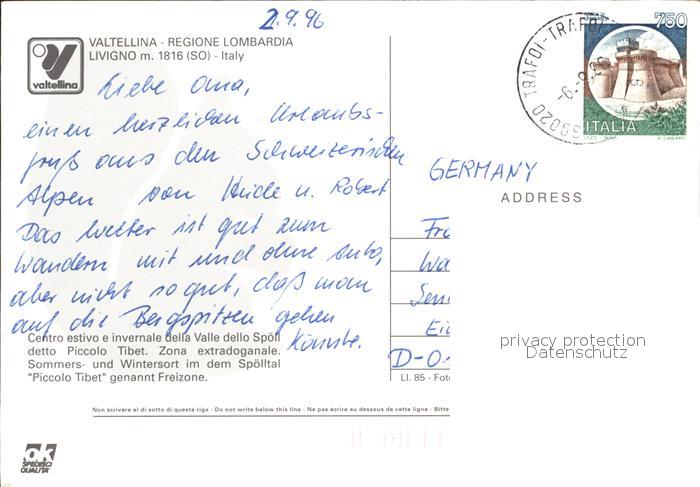 2.9.96
VALTELLINA - REGIONE LOMBARDIA
LIVIGNO m. 1816 (SO) - Italy
valtellina
Liebe Oma,
einen herzlichen Urlaubs-
gruß aus den Schweizerischen
Alpen von Heide u. Robert
Das Wetter ist gut zum
Wandern mit und ohne Auto,
aber nicht so gut, daß man
auf die Bergspitzen gehen
könnte.
Centro estivo e invernale della Valle dello Spöll
detto Piccolo Tibet. Zona extradoganale.
Sommers- und Wintersort im dem Spölltal
"Piccolo Tibet" genannt Freizone.
750
ITALIA
39020 TRAFOI-TRAFOI
GERMANY
ADDRESS
Fra
Wa
Sen
Eic
D-0
privacy protection
Datenschutz
LI. 85 - Foto
Non scrivere al di sotto di questa riga - Do not write below this line - Ne pas écrire au dessous de cette ligne - Bitte
ok
SPEDISCI
QUALITA'